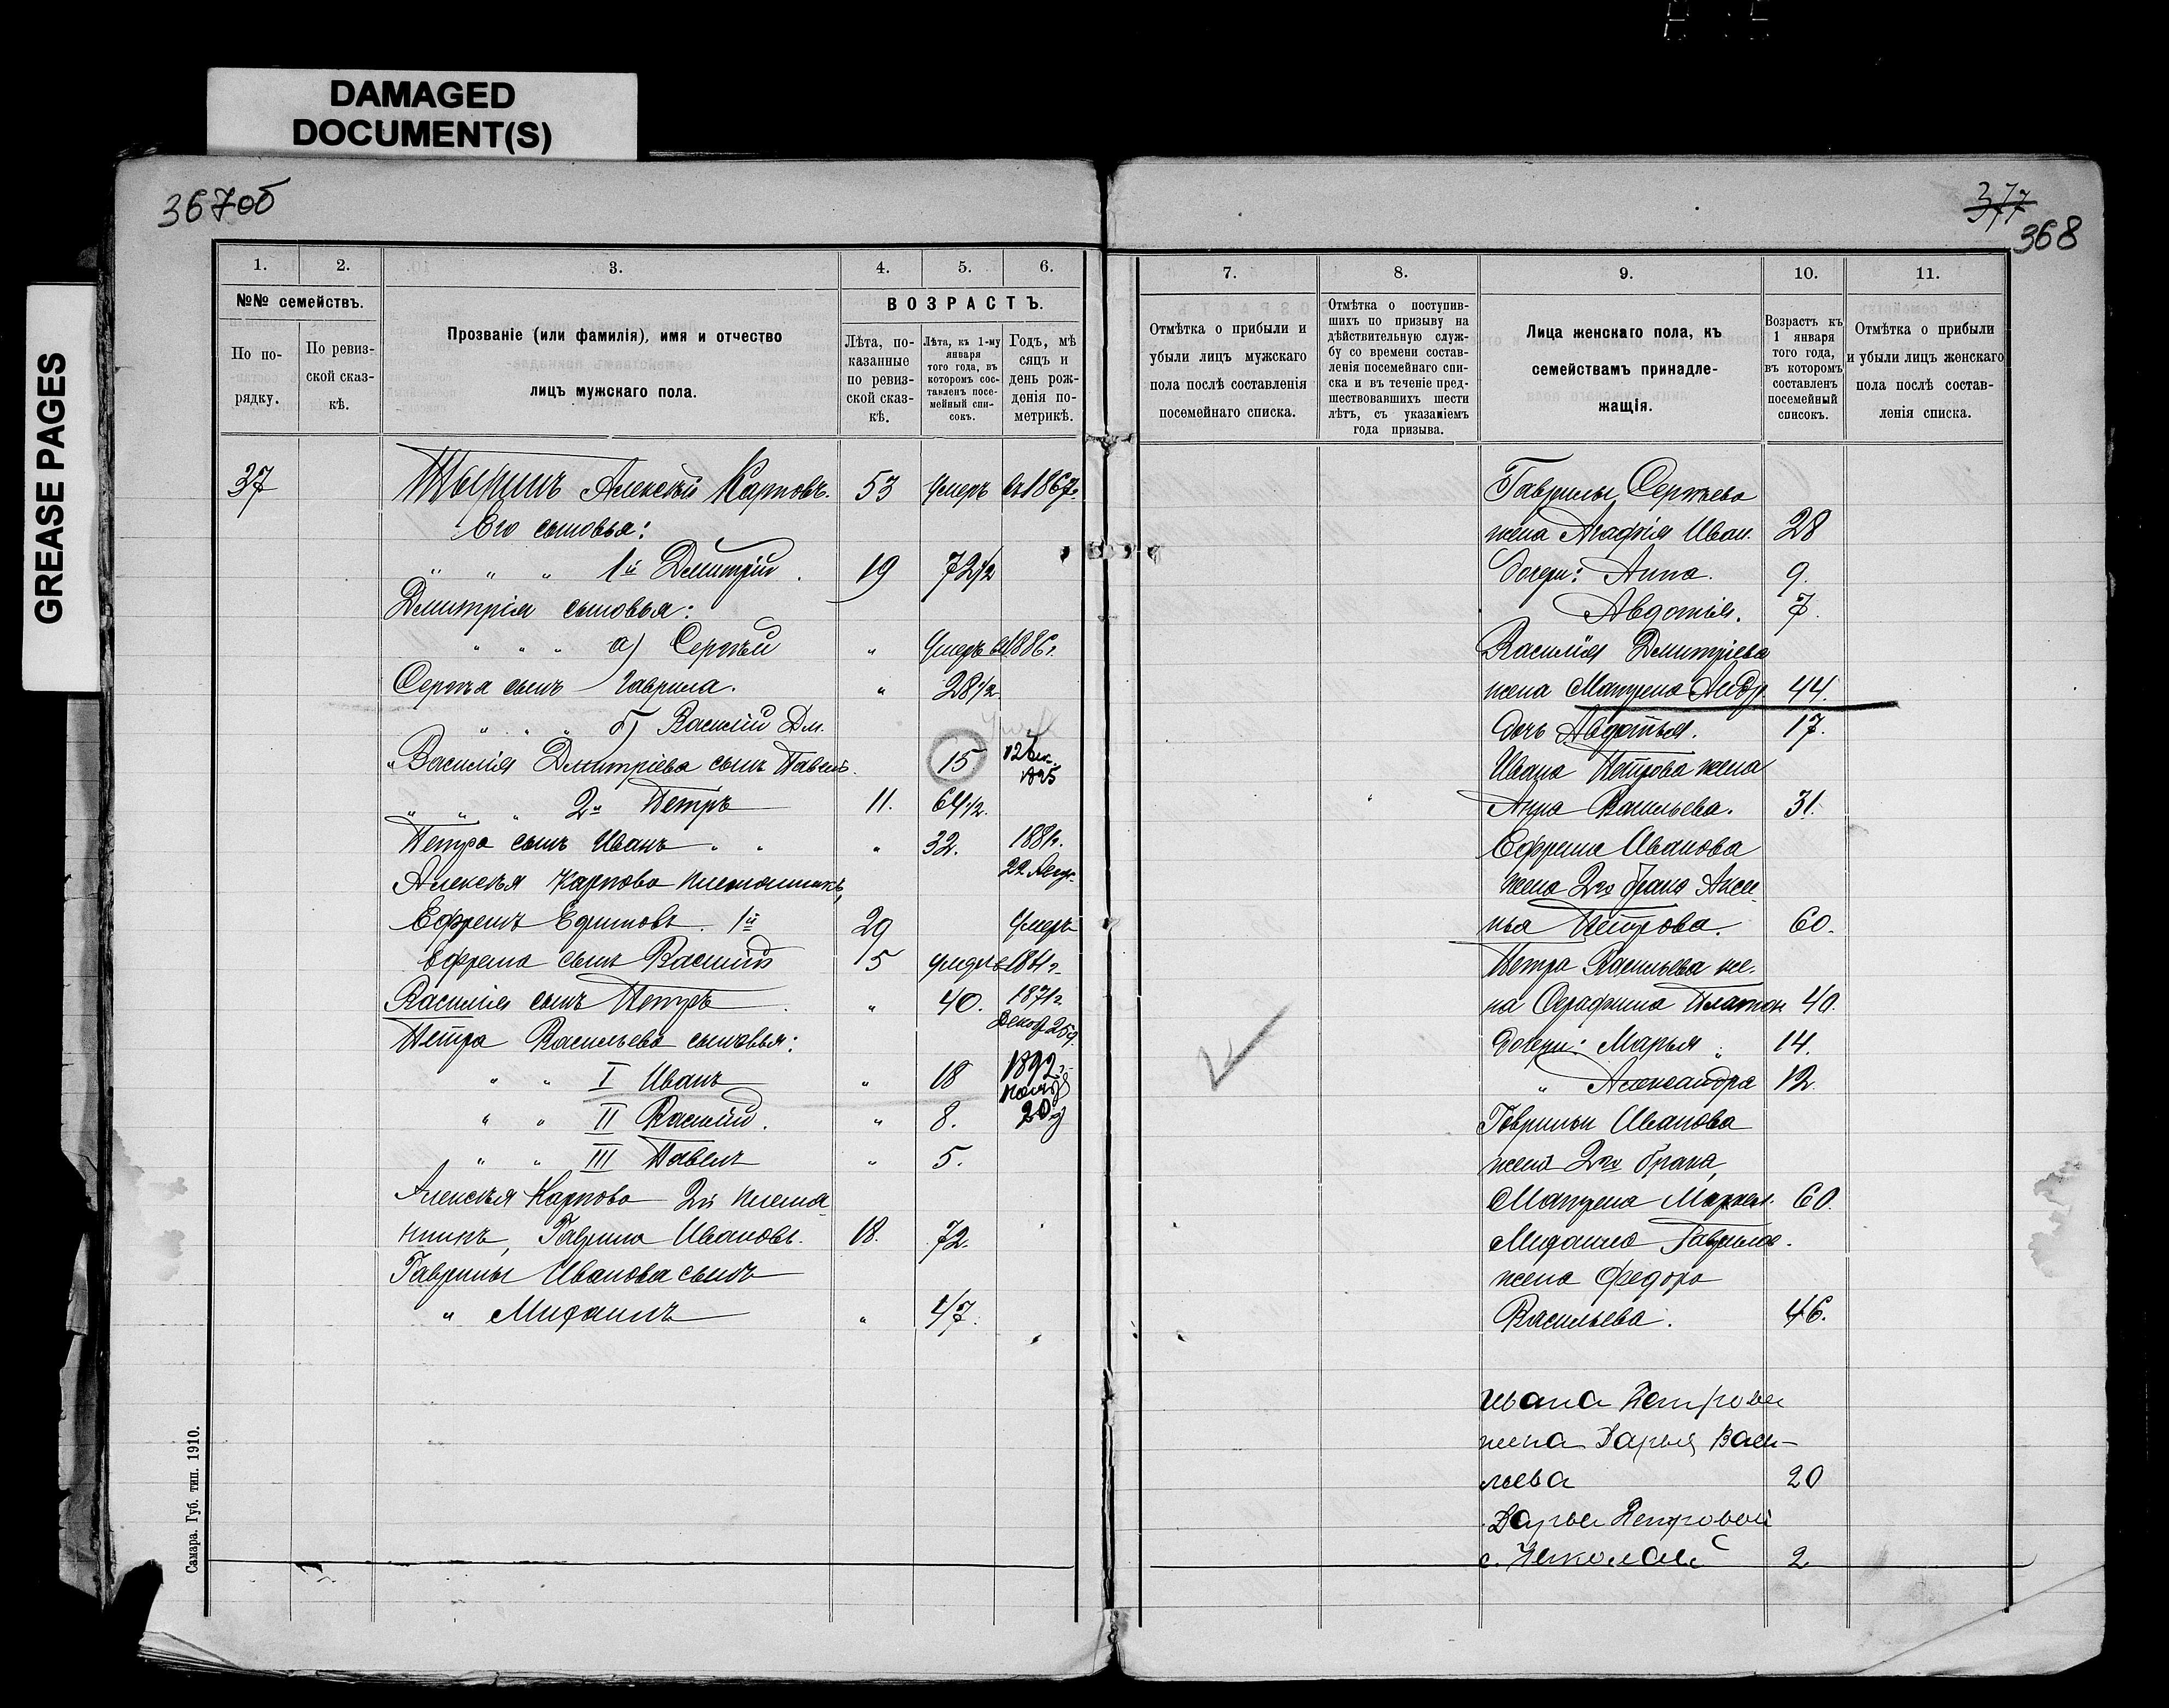 DAMAGED
DOCUMENT(S)
GREASE PAGES
367об
1.
2.
3.
4.
5.
6.
№№ семействъ.
По по-
рядку.
По ревиз-
ской сказ-
кѣ.
Прозваніе (или фамилія), имя и отчество
лицъ мужскаго пола.
ВОЗРАСТЪ.
Лѣта, по-
казанные
по ревиз-
ской сказ-
кѣ.
Лѣта, къ 1-му
января
того года, въ
которомъ сос-
тавленъ посе-
мейный спи-
сокъ.
Годъ, мѣ
сяцъ и
день рож-
денія по-
метрикѣ.
37 Алексѣй Карповъ. 53 умеръ въ 1867г.
Его сыновья:
" " " 1й Дмитрій. 19 72 1/2
Дмитрія сыновья:
" " " а) Сергѣй " умеръ въ 1886г.
Сергѣя сынъ Гаврила. " 28 1/2
" " " б) Василій Дм.
" Василія Дмитріева сынъ Павелъ. 15 12 Дек. 1895
" " " 2й Петръ 11. 64 1/2.
Петра сынъ Иванъ " " " 32. 1881г.
22
Алексѣя Карпова племянникъ,
Ефремъ Ефимовъ. 1й 29 умеръ
Ефрема сынъ Василій 15 умеръ в
Василія сынъ Петръ " 40. 1871г
Декаб 25д.
Петра Васильева сыновья:
" " I Иванъ " 18 1892г.
нояб
" " II Василій. " 8. 20д
" " III Павелъ " 5.
Алексѣя Карпова 2й племя
нникъ, Гаврила Ивановъ. 18. 72.
Гаврилы Иванова сынъ
" Михаилъ " 47.
Самара. Губ. тип. 1910.
377
368
7.
8.
9.
10.
11.
Отмѣтка о прибыли и
убыли лицъ мужскаго
пола послѣ составленія
посемейнаго списка.
Отмѣтка о поступив-
шихъ по призыву на
дѣйствительную служ-
бу со времени состав-
ленія посемейнаго спи-
ска и въ теченіе пред-
шествовавшихъ шести
лѣтъ, съ указаніемъ
года призыва.
Лица женскаго пола, къ
семействамъ принадле-
жащія.
Возрастъ къ
1 января
того года,
въ которомъ
составленъ
посемейный
списокъ.
Отмѣтка о прибыли
и убыли лицъ женскаго
пола послѣ состав-
ленія списка.
Гаврилы Сергѣева
жена Агафія Иван. 28
Дочери: Анна. 9.
Авдотья. 7.
Василія Дмитріева
жена Матрена Андр 44.
дочь Авдотья. 17.
Ивана Петрова жена
Анна Васильева. 31.
Ефрема Иванова
жена 2го брака Аксе
нья Петрова. 60.
Петра Васильева же-
на Серафима Платон 40.
Дочери: Марья " 14.
" Александра 12.
Гаврилы Иванова
жена 2го брака,
Матрена Маркел. 60.
Михаила Гаврилов.
жена Федора
Васильева. 46.
Ивана Петрова
жена Дарья Васи-
льева 20
Дарьи Петровой
с. Николай 2